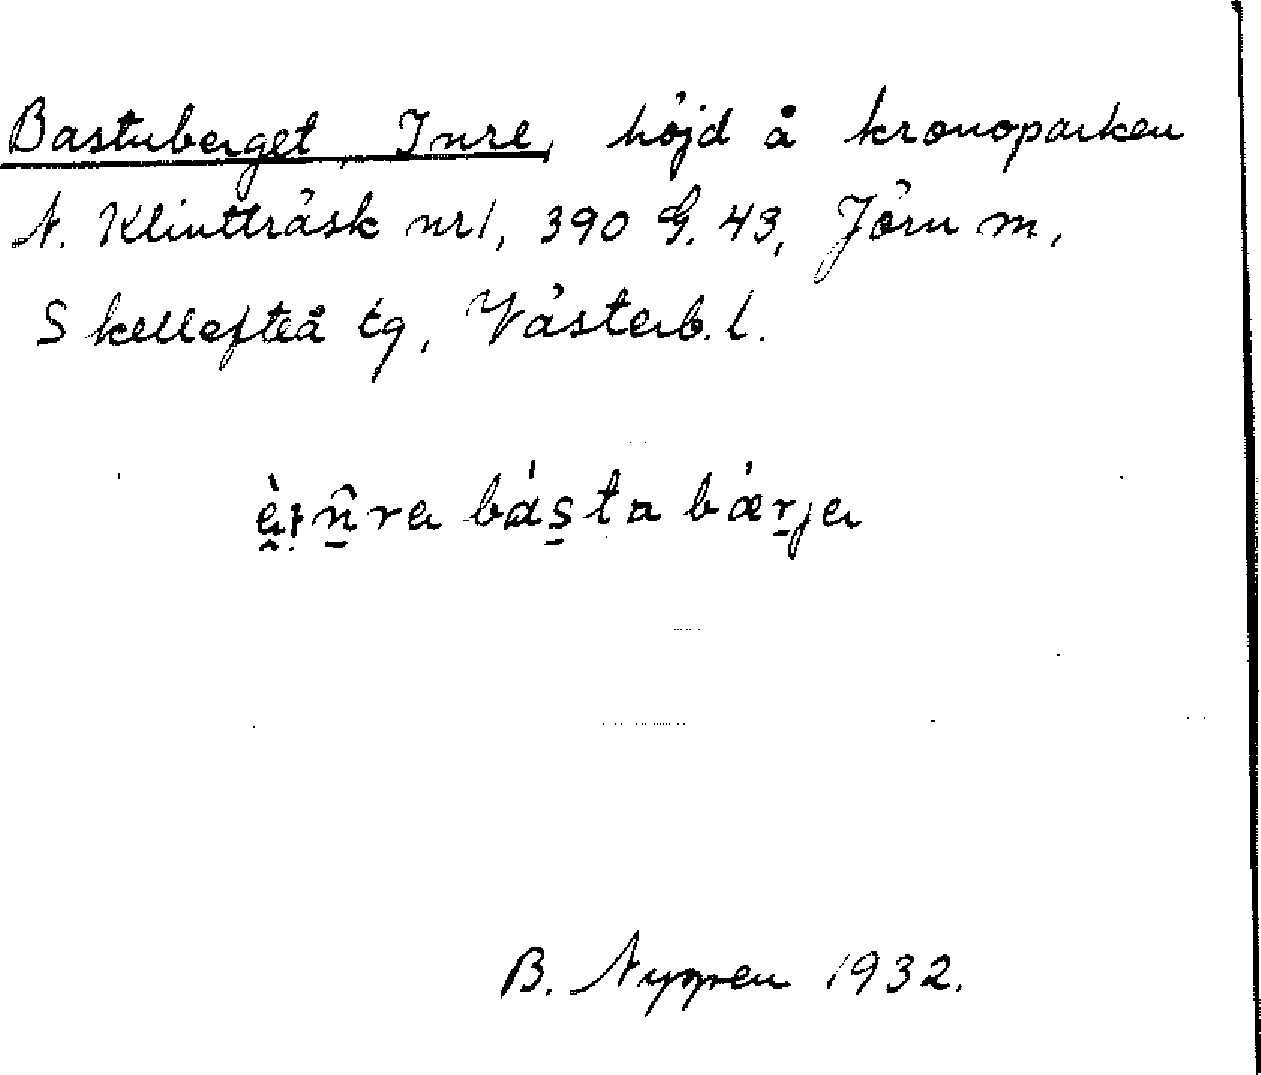 Bastuberget, Inre, höjd å kronoparken
N. Klintträsk nr 1, 390 G. 43, Jörn m,
Skellefteå tg, Västerb. l.
básta bærja
B. Nyppen 1932.